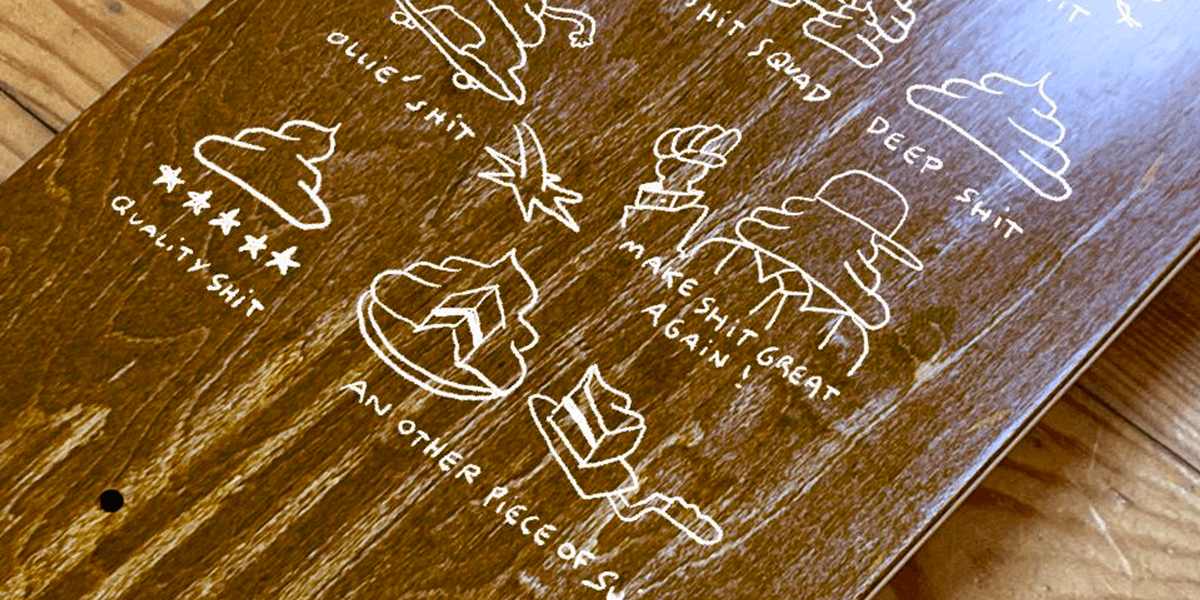 OLLIE' SHIT
SHIT SQUAD
DEEP SHIT
QUALITY SHIT
MAKE SHIT GREAT
AGAIN !
AN OTHER PIECE OF